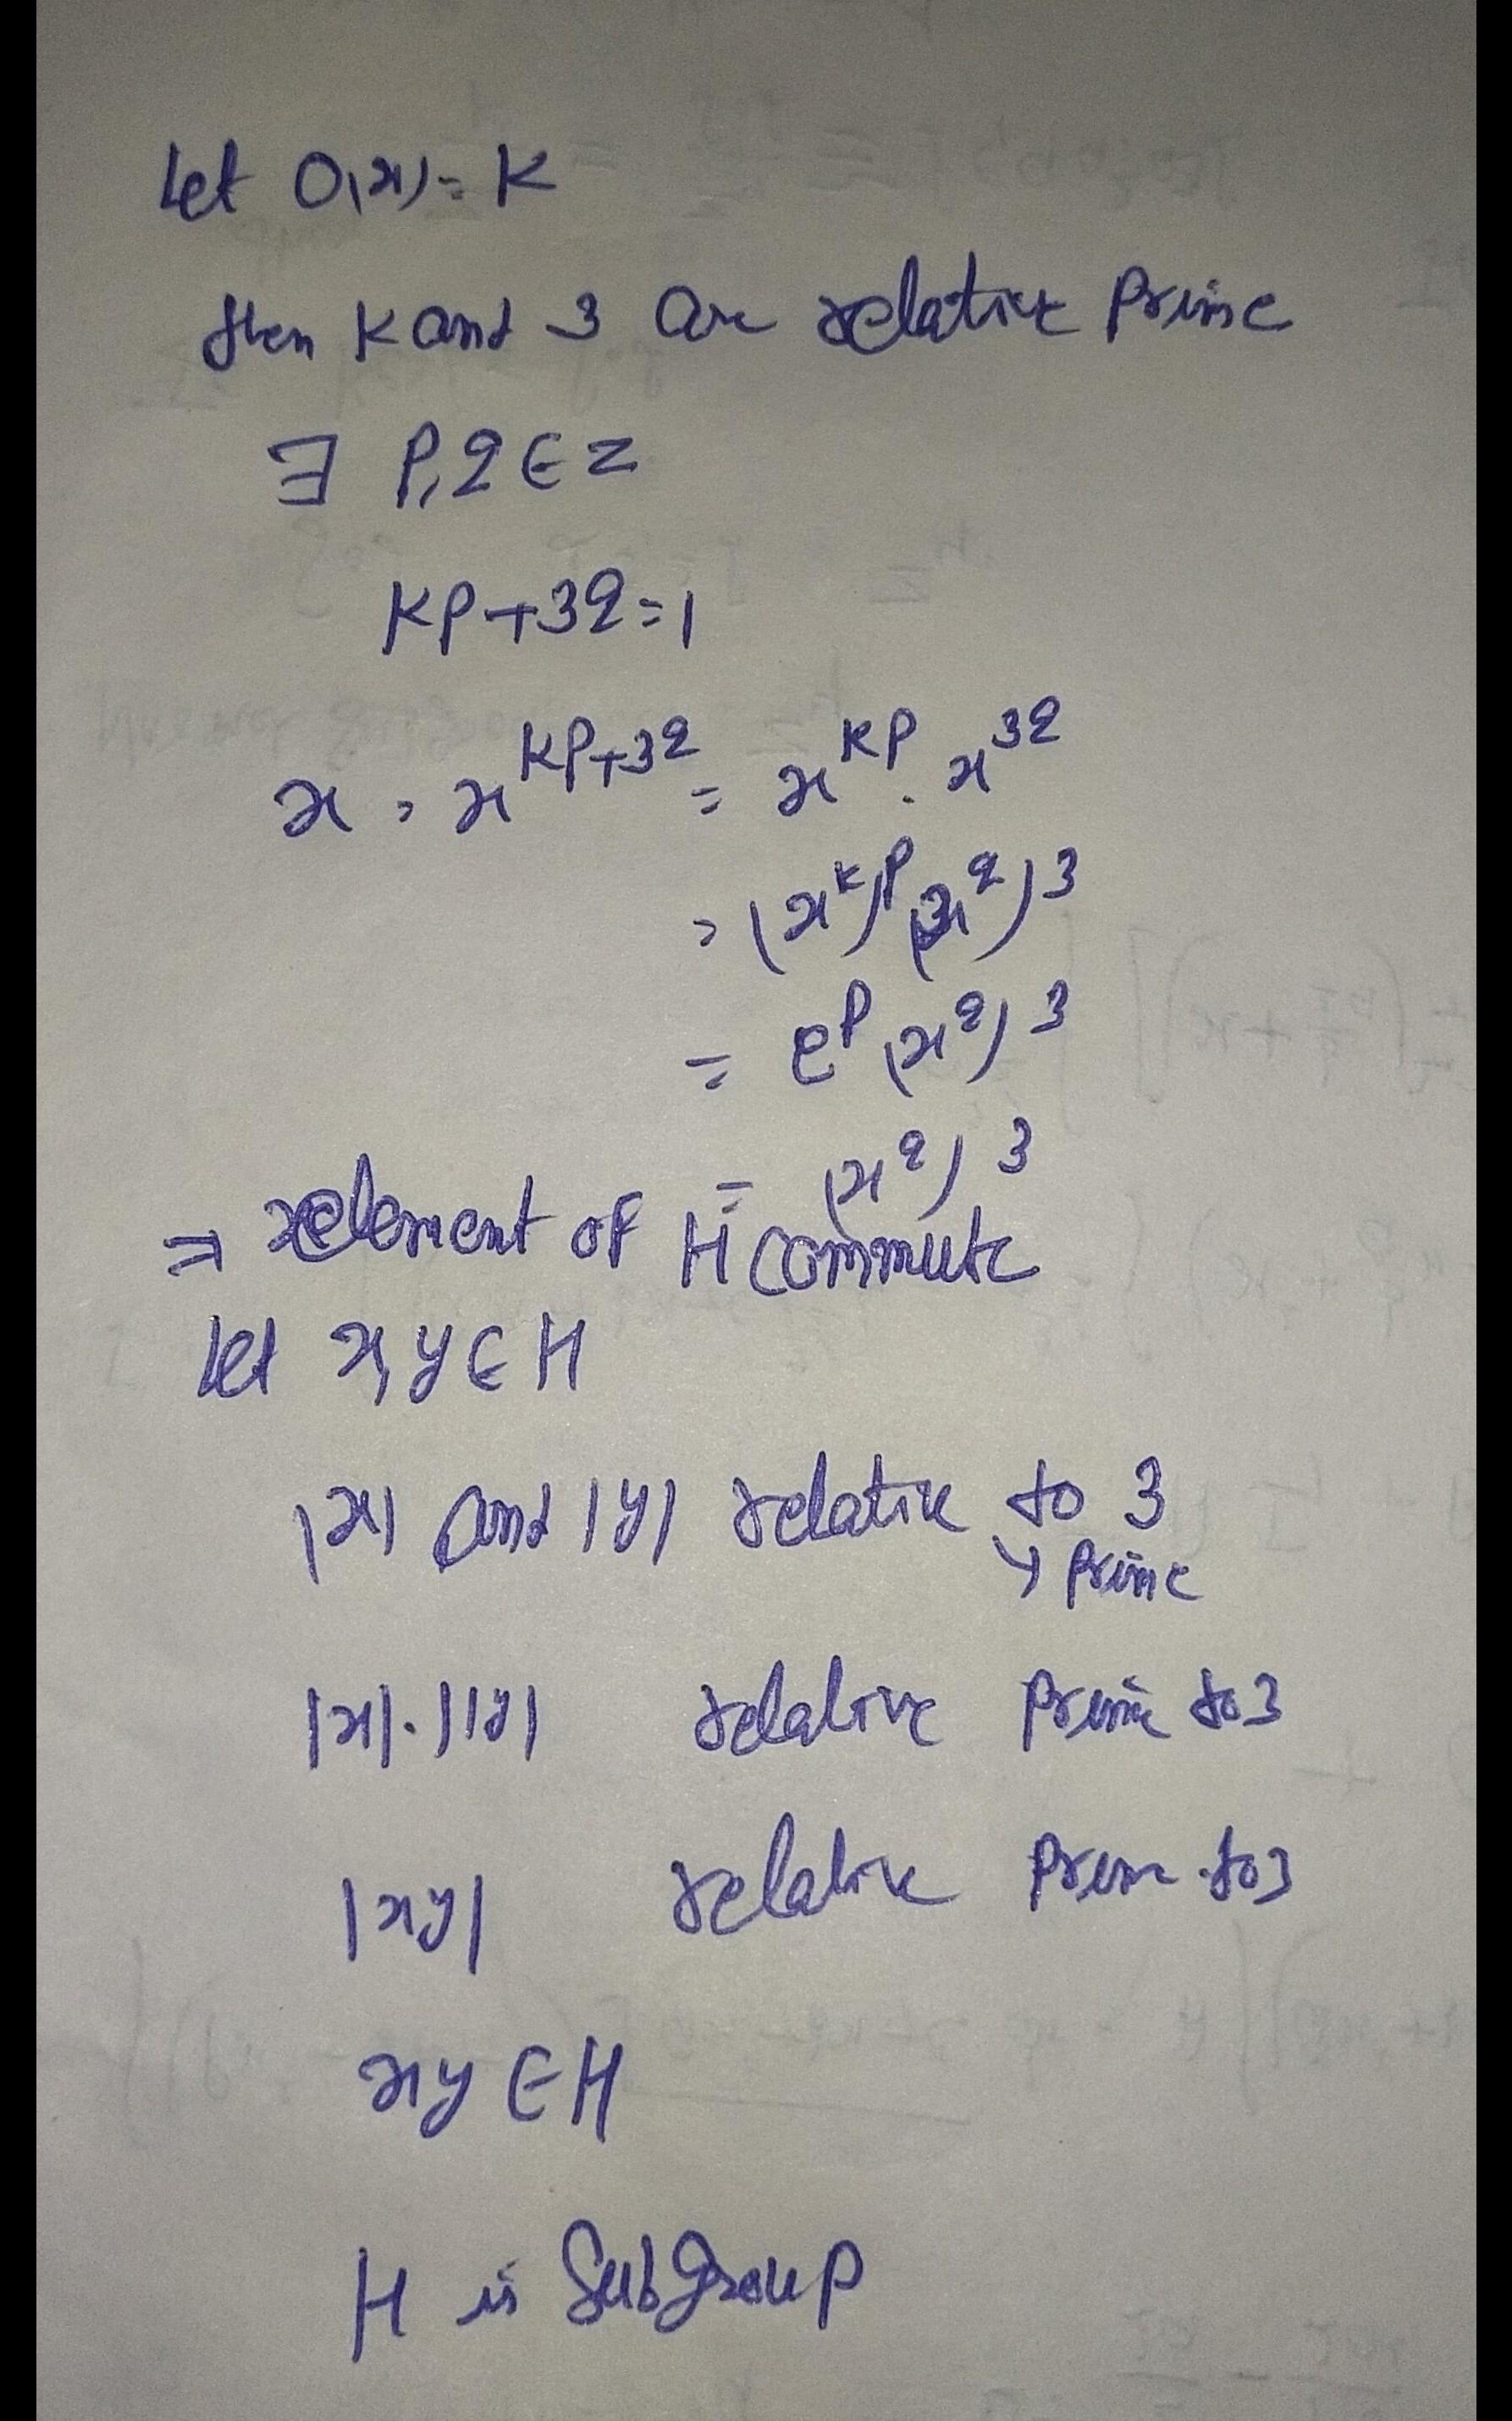 Let O(x) = K
then K and 3 are relative prime
∃ P, q ∈ Z
KP+3q=1
x = x^{KP+3q} = x^{KP} . x^{3q}
= (x^K)^P (x^q)^3
= e^P (x^q)^3
= (x^q)^3
⇒ element of H commute
Let x, y ∈ H
|x| and |y| relative to 3
↳ prime
|x|.|y| relative prime to 3
|xy| relative prime to 3
xy ∈ H
H is Subgroup